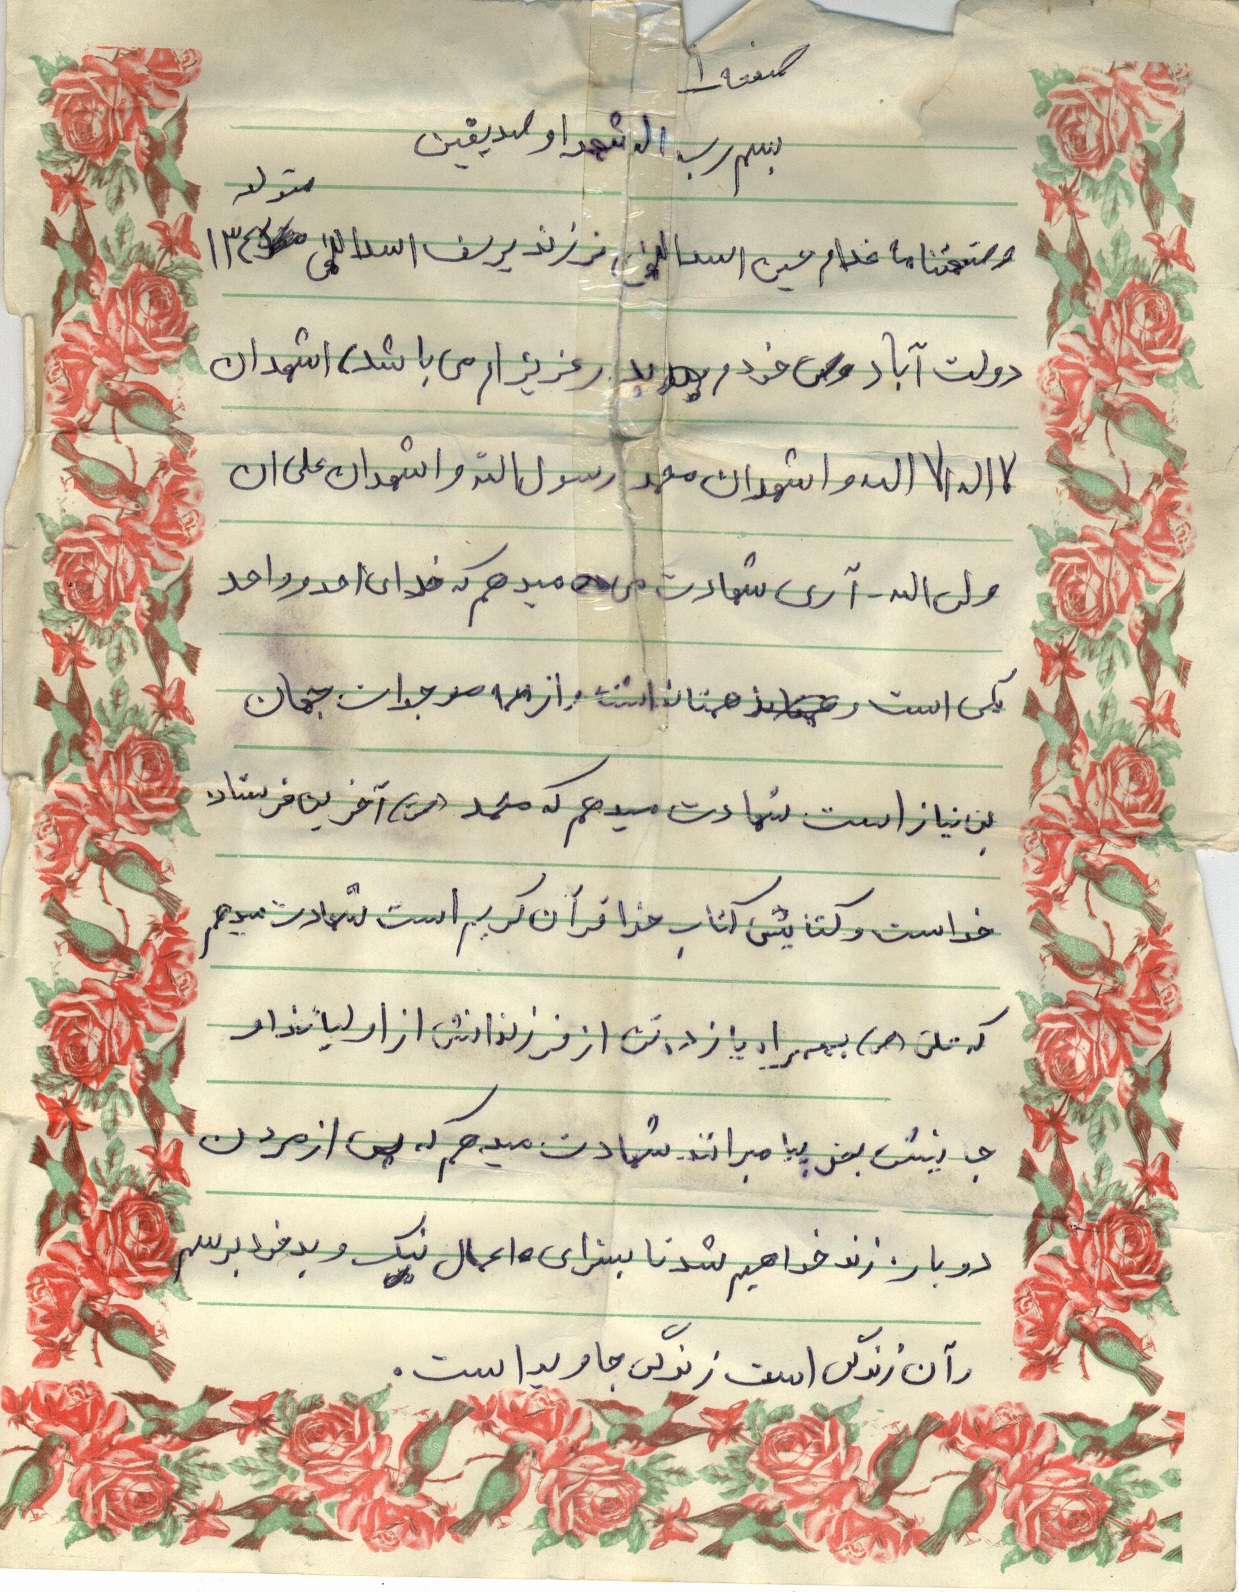 صفحه ۱
بسم رب الشهدا و صدیقین
متولد
وصیتنامه غلام حسین اسداللهی فرزند یوسف اسداللهی ۱۳۴
دولت آباد وصی خودم پدر عزیزام می باشد، اشهدان
لااله الا الله و اشهدان محمد رسول الله و اشهدان علی ان
ولی الله - آری شهادت میدهم که خدای احد و واحد
یکی است و همتا نداشته و از همه موجودات جهان
بی نیاز است شهادت میدهم که محمد (ص) آخرین فرستاده
خداست و کتابش کتاب خدا قرآن کریم است شهادت میدهم
که علی (ص) بهمراه یازده تن از فرزندانش از اولیاء خدا و
جانیش بحق پیامبرانند. شهادت میدهم که پس از مردن
دوباره زنده خواهیم شد تا بسزای اعمال نیک و بد خود برسیم
و آن زندگی است زندگی جاوید است.